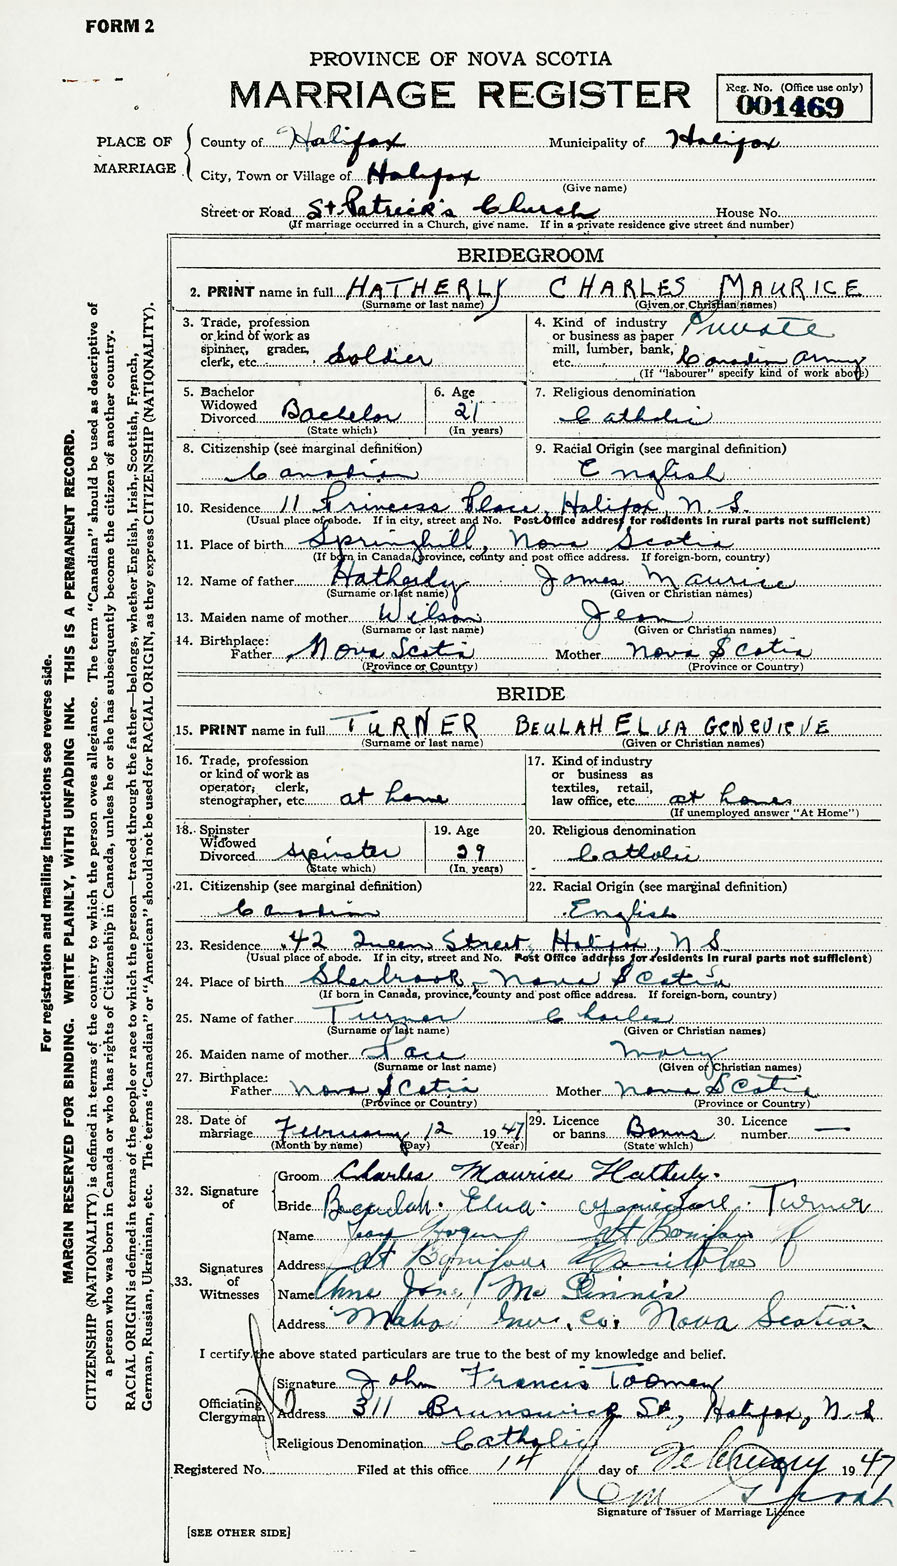 FORM 2
PROVINCE OF NOVA SCOTIA
MARRIAGE REGISTER
Reg. No. (Office use only)
001469
PLACE OF MARRIAGE
County of Halifax Municipality of Halifax
City, Town or Village of Halifax
(Give name)
Street or Road St. Patrick's Church House No.
(If marriage occurred in a Church, give name. If in a private residence give street and number)
BRIDEGROOM
2. PRINT name in full HATHERLY CHARLES MAURICE
(Surname or last name) (Given or Christian names)
3. Trade, profession or kind of work as spinner, grader, clerk, etc. Soldier
4. Kind of industry or business as paper mill, lumber, bank, etc. Private Canadian Army
(If "labourer" specify kind of work above)
5. Bachelor Widowed Divorced Bachelor
(State which)
6. Age 21
(In years)
7. Religious denomination
Catholic
8. Citizenship (see marginal definition)
Canadian
9. Racial Origin (see marginal definition)
English
10. Residence 11 Princess Place, Halifax, N.S.
(Usual place of abode. If in city, street and No. Post Office address for residents in rural parts not sufficient)
11. Place of birth Springhill, Nova Scotia
(If born in Canada, province, county and post office address. If foreign-born, country)
12. Name of father Hatherly James Maurice
(Surname or last name) (Given or Christian names)
13. Maiden name of mother Wilson Jean
(Surname or last name) (Given or Christian names)
14. Birthplace:
Father Nova Scotia Mother Nova Scotia
(Province or Country) (Province or Country)
BRIDE
15. PRINT name in full TURNER BEULAH ELVA GENEVIEVE
(Surname or last name) (Given or Christian names)
16. Trade, profession or kind of work as operator, clerk, stenographer, etc. at home
17. Kind of industry or business as textiles, retail, law office, etc. at home
(If unemployed answer "At Home")
18. Spinster Widowed Divorced Spinster
(State which)
19. Age 29
(In years)
20. Religious denomination
Catholic
21. Citizenship (see marginal definition)
Canadian
22. Racial Origin (see marginal definition)
English
23. Residence 42 Queen Street, Halifax, N.S.
(Usual place of abode. If in city, street and No. Post Office address for residents in rural parts not sufficient)
24. Place of birth Sherbrook, Nova Scotia
(If born in Canada, province, county and post office address. If foreign-born, country)
25. Name of father Turner Charles
(Surname or last name) (Given or Christian names)
26. Maiden name of mother Pace Mary
(Surname or last name) (Given or Christian names)
27. Birthplace:
Father Nova Scotia Mother Nova Scotia
(Province or Country) (Province or Country)
28. Date of marriage February 12 1947
(Month by name) (Day) (Year)
29. Licence or banns Banns
(State which)
30. Licence number —
32. Signature of
Groom Charles Maurice Hatherly.
Bride Beulah Elva Turner
33. Signatures of Witnesses
Name St Boniface
Address St Boniface Manitoba
Name Anne Jane Mc Ginnis
Address Mabou Inv. Co. Nova Scotia
I certify the above stated particulars are true to the best of my knowledge and belief.
Officiating Clergyman
Signature John Francis Toomey
Address 311 Brunswick St., Halifax, N.S
Religious Denomination Catholic
Registered No. Filed at this office 14 day of February 1947
Signature of Issuer of Marriage Licence
[SEE OTHER SIDE]
For registration and mailing instructions see reverse side.
MARGIN RESERVED FOR BINDING. WRITE PLAINLY, WITH UNFADING INK. THIS IS A PERMANENT RECORD.
CITIZENSHIP (NATIONALITY) is defined in terms of the country to which the person owes allegiance. The term "Canadian" should be used as descriptive of
a person who was born in Canada or who has rights of Citizenship in Canada, unless he or she has subsequently become the citizen of another country.
RACIAL ORIGIN is defined in terms of the people or race to which the person—traced through the father—belongs, whether English, Irish, Scottish, French,
German, Russian, Ukrainian, etc. The terms "Canadian" or "American" should not be used for RACIAL ORIGIN, as they express CITIZENSHIP (NATIONALITY).